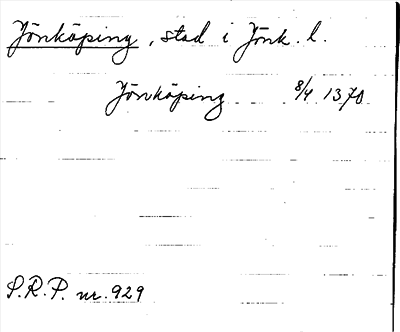 Jönköping, stad i Jönk. l.
Jönköping 8/4 1370
S.R.P. nr. 929